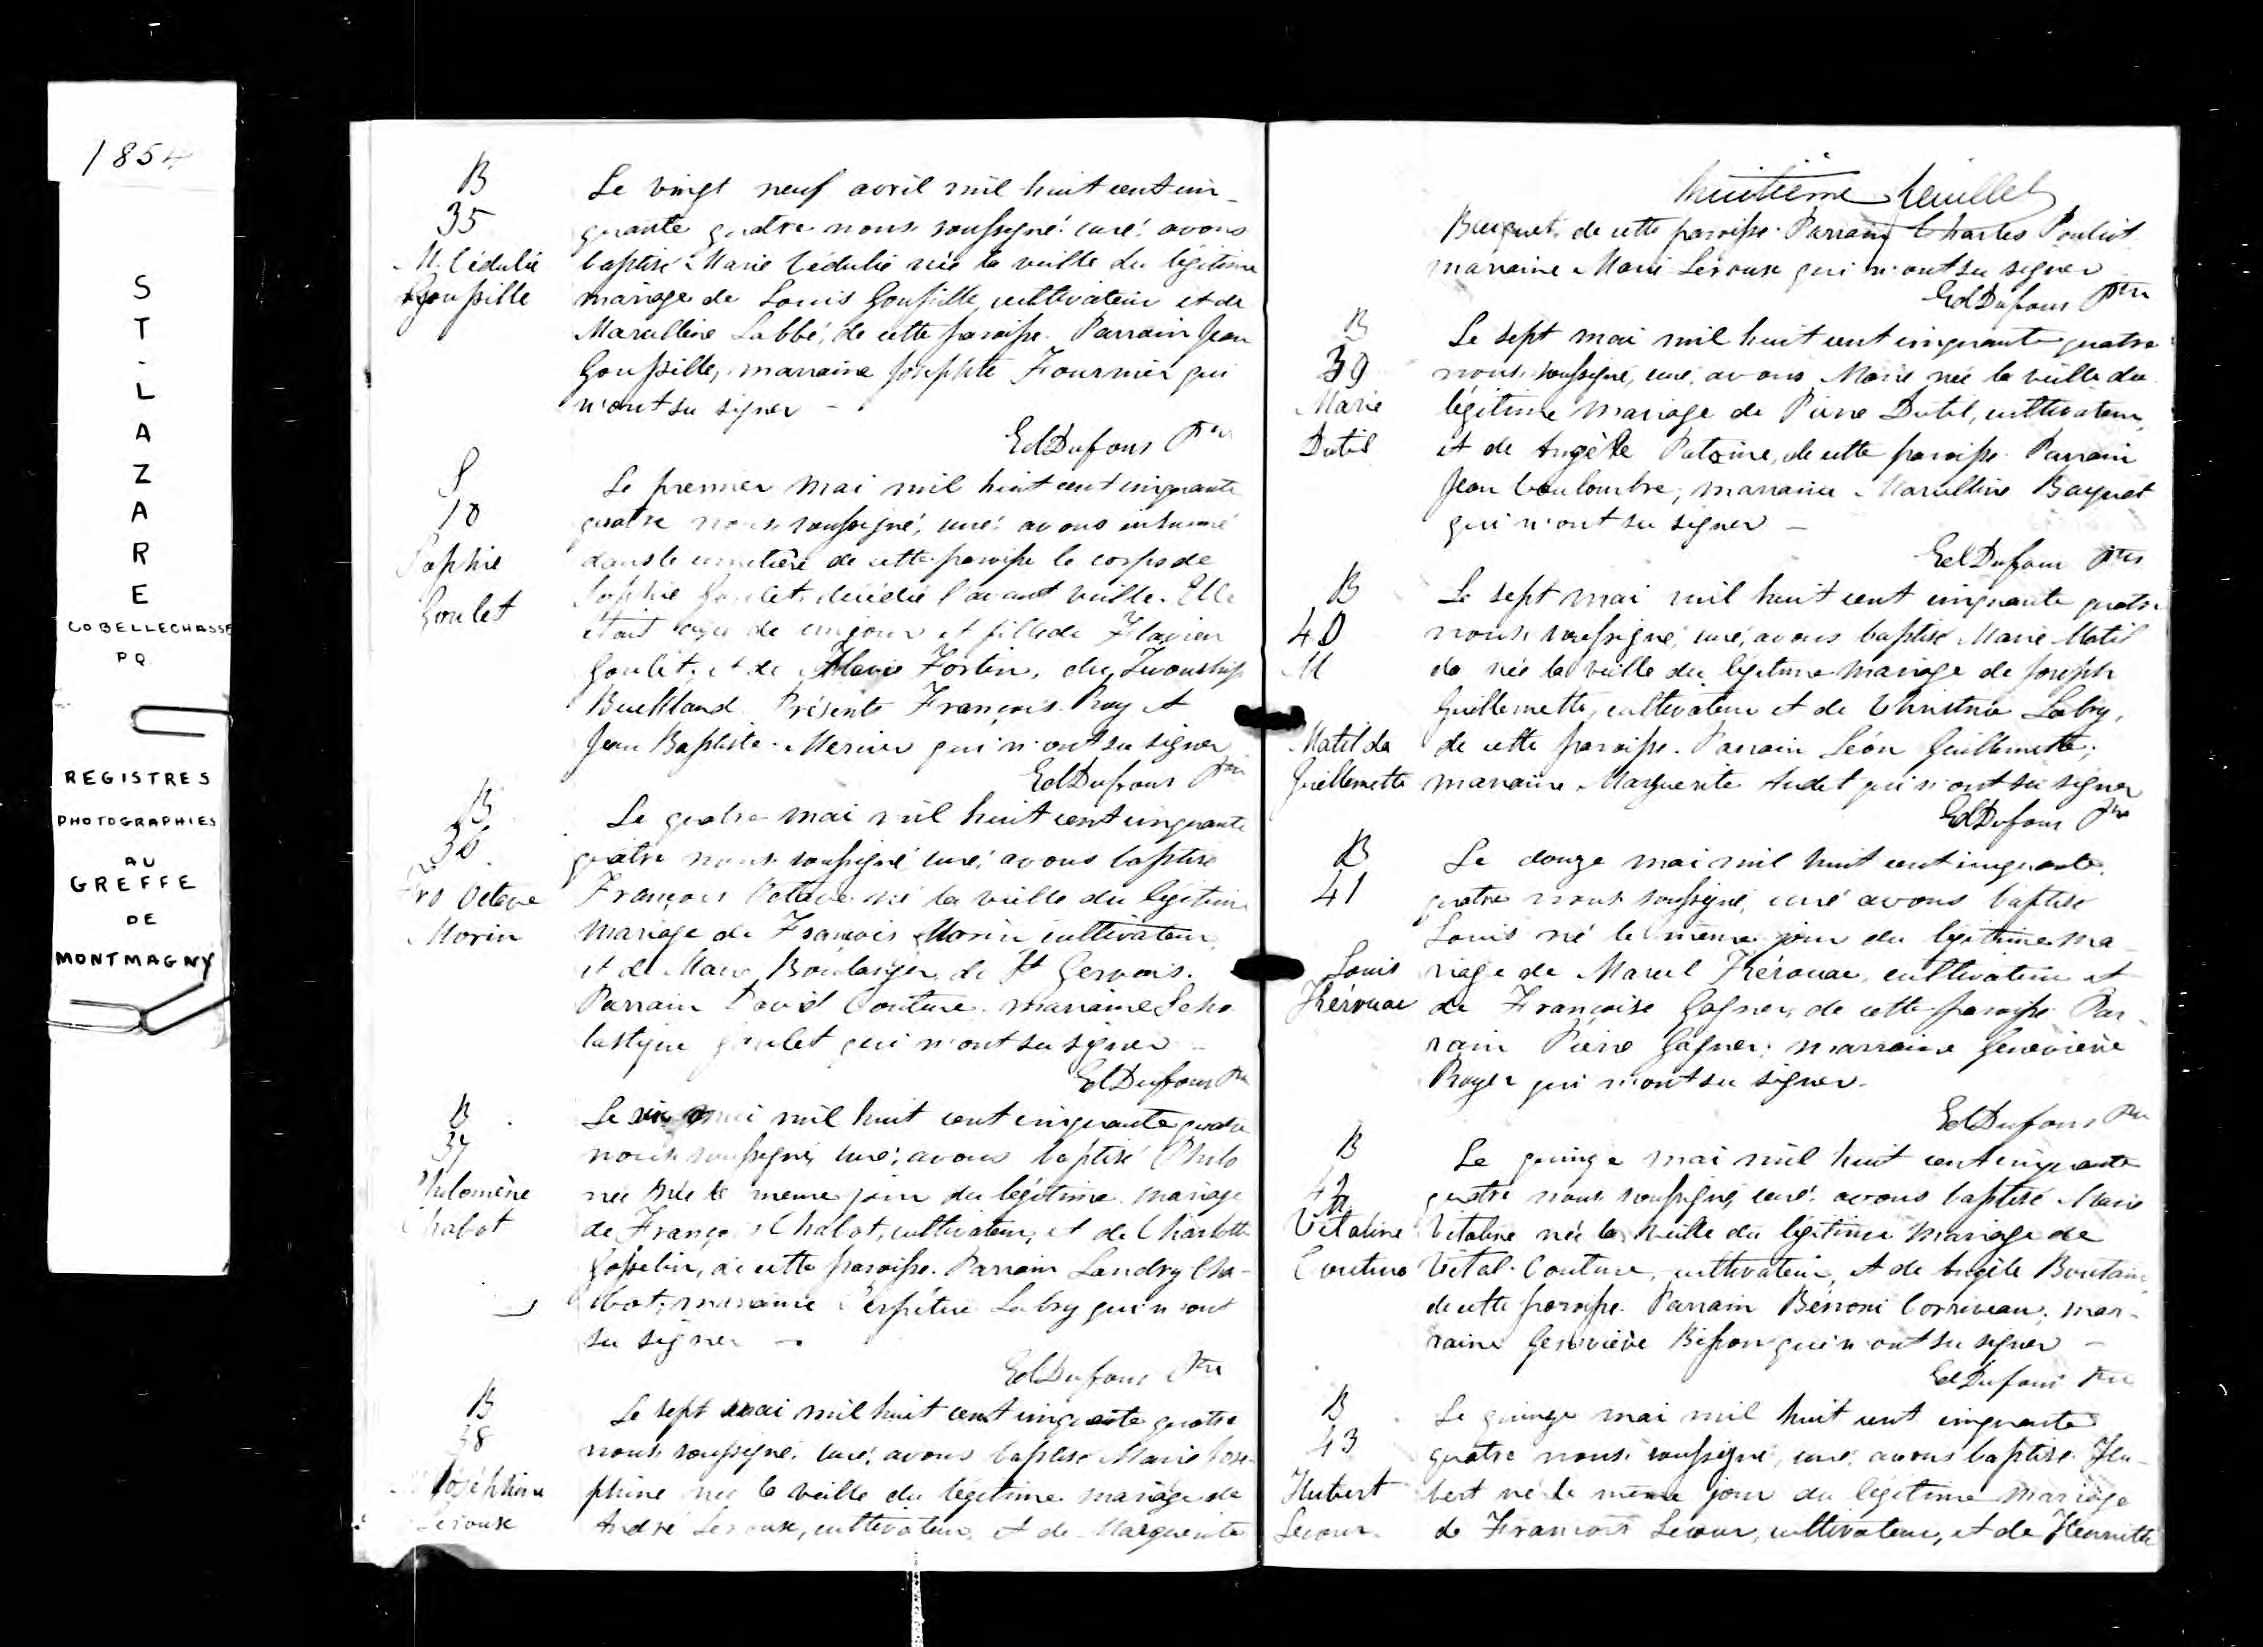 1854
ST-LAZARE
CO BELLECHASSE
PQ
REGISTRES
PHOTOGRAPHIES
AU
GREFFE
DE
MONTMAGNY
B
35
M. Cédulie
Goupille
Le vingt neuf avril mil huit cent cin-
quante quatre nous soussigné curé avons
baptisé Marie Cédulie née la veille du légitime
mariage de Louis Goupille cultivateur et de
Marcelline Labbé, de cette paroisse. Parrain Jean
Goupille, marraine Josephte Fournier qui
n'ont su signer -
Ed Dufour Ptre
S
10
Sophie
Goulet
Le premier mai mil huit cent cinquante
quatre nous soussigné, curé avons inhumé
dans le cimetière de cette paroisse le corps de
Sophie Goulet, décédée l'avant veille. Elle
était âgée de cinq jours et fille de Flavien
Goulet, et de Marie Fortin, du Township
Buckland. Présents François Roy et
Jean Baptiste Mercier qui n'ont su signer
Ed Dufour Ptre
B
36
Frs Octave
Morin
Le quatre mai mil huit cent cinquante
quatre nous soussigné curé avons baptisé
François Octave né la veille du légitime
mariage de François Morin cultivateur,
et de Marie Boulanger, de St Gervais.
Parrain David Couture, marraine Scho
lastique Goulet qui n'ont su signer -
Ed Dufour Ptre
B
37
Philomène
Chabot
Le mai mil huit cent cinquante quatre
nous soussigné, curé, avons baptisé Philo
née le meme jour du légitime mariage
de François Chabot, cultivateur, et de Charlotte
Gosselin, de cette paroisse. Parrain Landry Cha-
bot; marraine Perpétue Labry qui n'ont
su signer -
Ed Dufour Ptre
B
38
M Joséphine
Leroux
Le sept mai mil huit cent cinquante quatre
nous soussigné, curé, avons baptisé Marie José-
phine née la veille du légitime mariage de
André Leroux, cultivateur, et de Marguerite
huitième feuillet
Baquet, de cette paroisse. Parrain Charles Pouliot
marraine Marie Leroux qui n'ont su signer
Ed Dufour Ptre
B
39
Marie
Dutil
Le sept mai mil huit cent cinquante quatre
nous soussigné, curé, avons Marie née la veille du
légitime mariage de Pierre Dutil, cultivateur,
et de Angèle Patoine, de cette paroisse. Parrain
Jean Coulombre; marraine Marcelline Baquet
qui n'ont su signer -
Ed Dufour Ptre
B
40
M
Matilda
Guillemette
Le sept mai mil huit cent cinquante quatre
nous soussigné, curé, avons baptisé Marie Matil
da née la veille du légitime mariage de Joseph
Guillemette, cultivateur et de Christine Labry,
de cette paroisse. Parrain Léon Guillemette;
marraine Marguerite Audet qui n'ont su signer
Ed Dufour Ptre
B
41
Louis
Kérouac
Le douze mai mil huit cent cinquante
quatre nous soussigné, curé avons baptisé
Louis né le même jour du légitime ma-
riage de Marcel Kérouac, cultivateur et
de Françoise Gagner, de cette paroisse. Par-
rain Pierre Gagner; marraine Geneviève
Royer qui n'ont su signer.
Ed Dufour Ptre
B
42
M
Vitaline
Couture
Le quinze mai mil huit cent cinquante
quatre nous soussigné, curé avons baptisé Marie
Vitaline née la veille du légitime mariage de
Vital Couture, cultivateur, et de Angèle Boutain
de cette paroisse. Parrain Bénoni Corriveau; mar-
raine Geneviève Bisson qui n'ont su signer -
Ed Dufour Ptre
B
43
Hubert
Lecour
Le quinze mai mil huit cent cinquante
quatre nous soussigné, curé, avons baptisé Hu-
bert né le même jour du légitime mariage
de François Lecour, cultivateur, et de Henriette